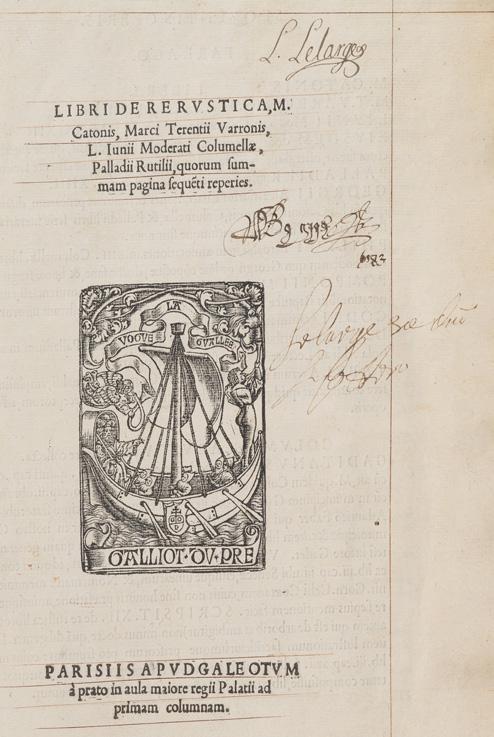 L. Lelarge
LIBRI DE RE RVSTICA, M.
Catonis, Marci Terentii Varronis,
L. Iunii Moderati Columellæ,
Palladii Rutilii, quorum ſum-
mam pagina ſequẽti reperies.
LA
VOGVE
GVALLEE
Lelarge
GALLIOT·DV·PRE
PARISIIS APVD GALEOTVM
à prato in aula maiore regii Palatii ad
primam columnam.